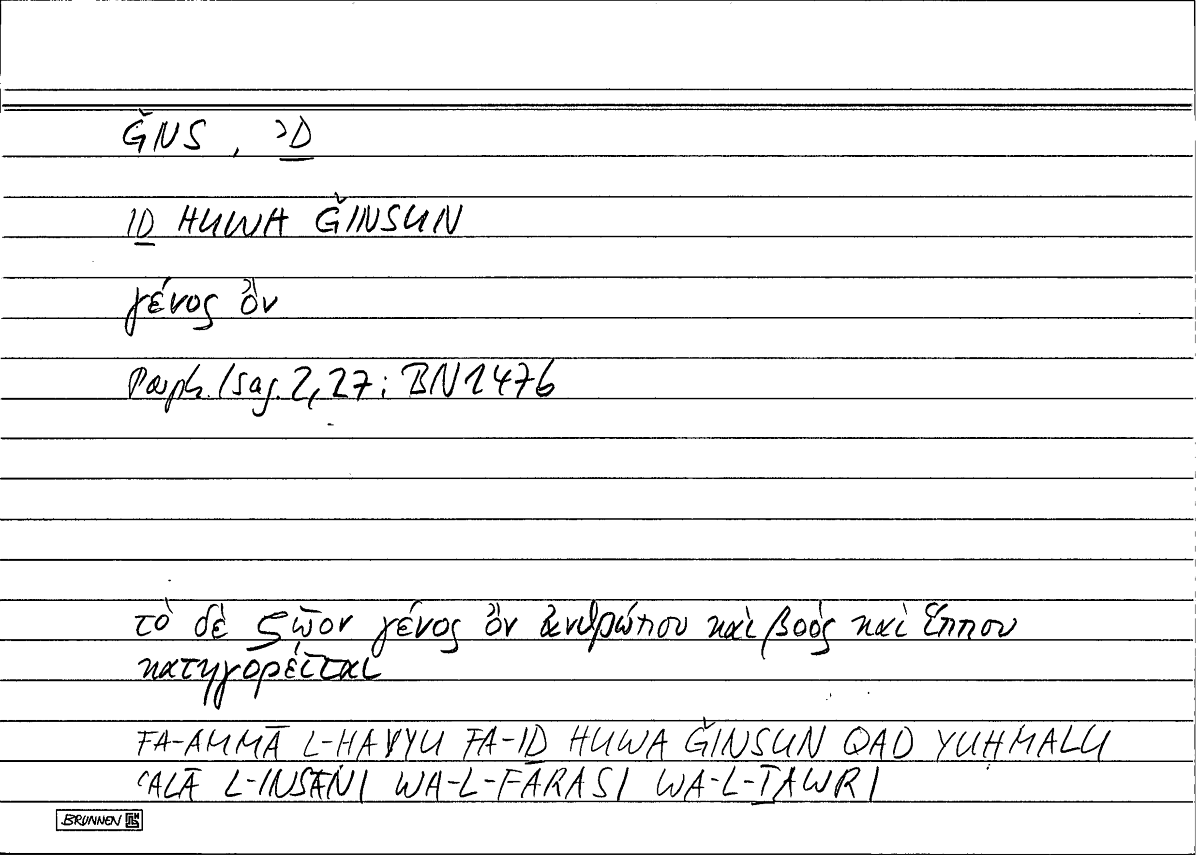 ǦNS , ʾḎ
IḎ HUWA ǦINSUN
γένος ὂν
Porph. Isag. 2,27; BN1476
τὸ δὲ ζῷον γένος ὂν ἀνθρώπου καὶ βοὸς καὶ ἵππου
κατηγορεῖται
FA-AMMĀ L-HAYYU FA-IḎ HUWA ǦINSUN QAD YUḤMALU
ʿALĀ L-INSĀNI WA-L-FARASI WA-L-ṮAWRI
BRUNNEN